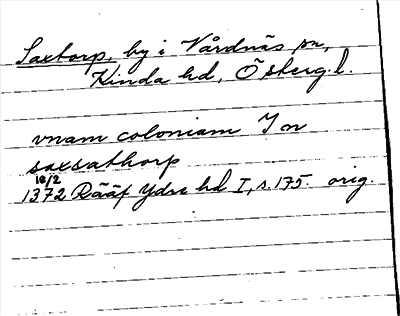 Saxtorp, by i Vårdnäs sn,
Kinda hd, Östergl.
vnam coloniam J
saxsathorp
16/2
1372 Rääf Ydre hd I, s. 175. orig.